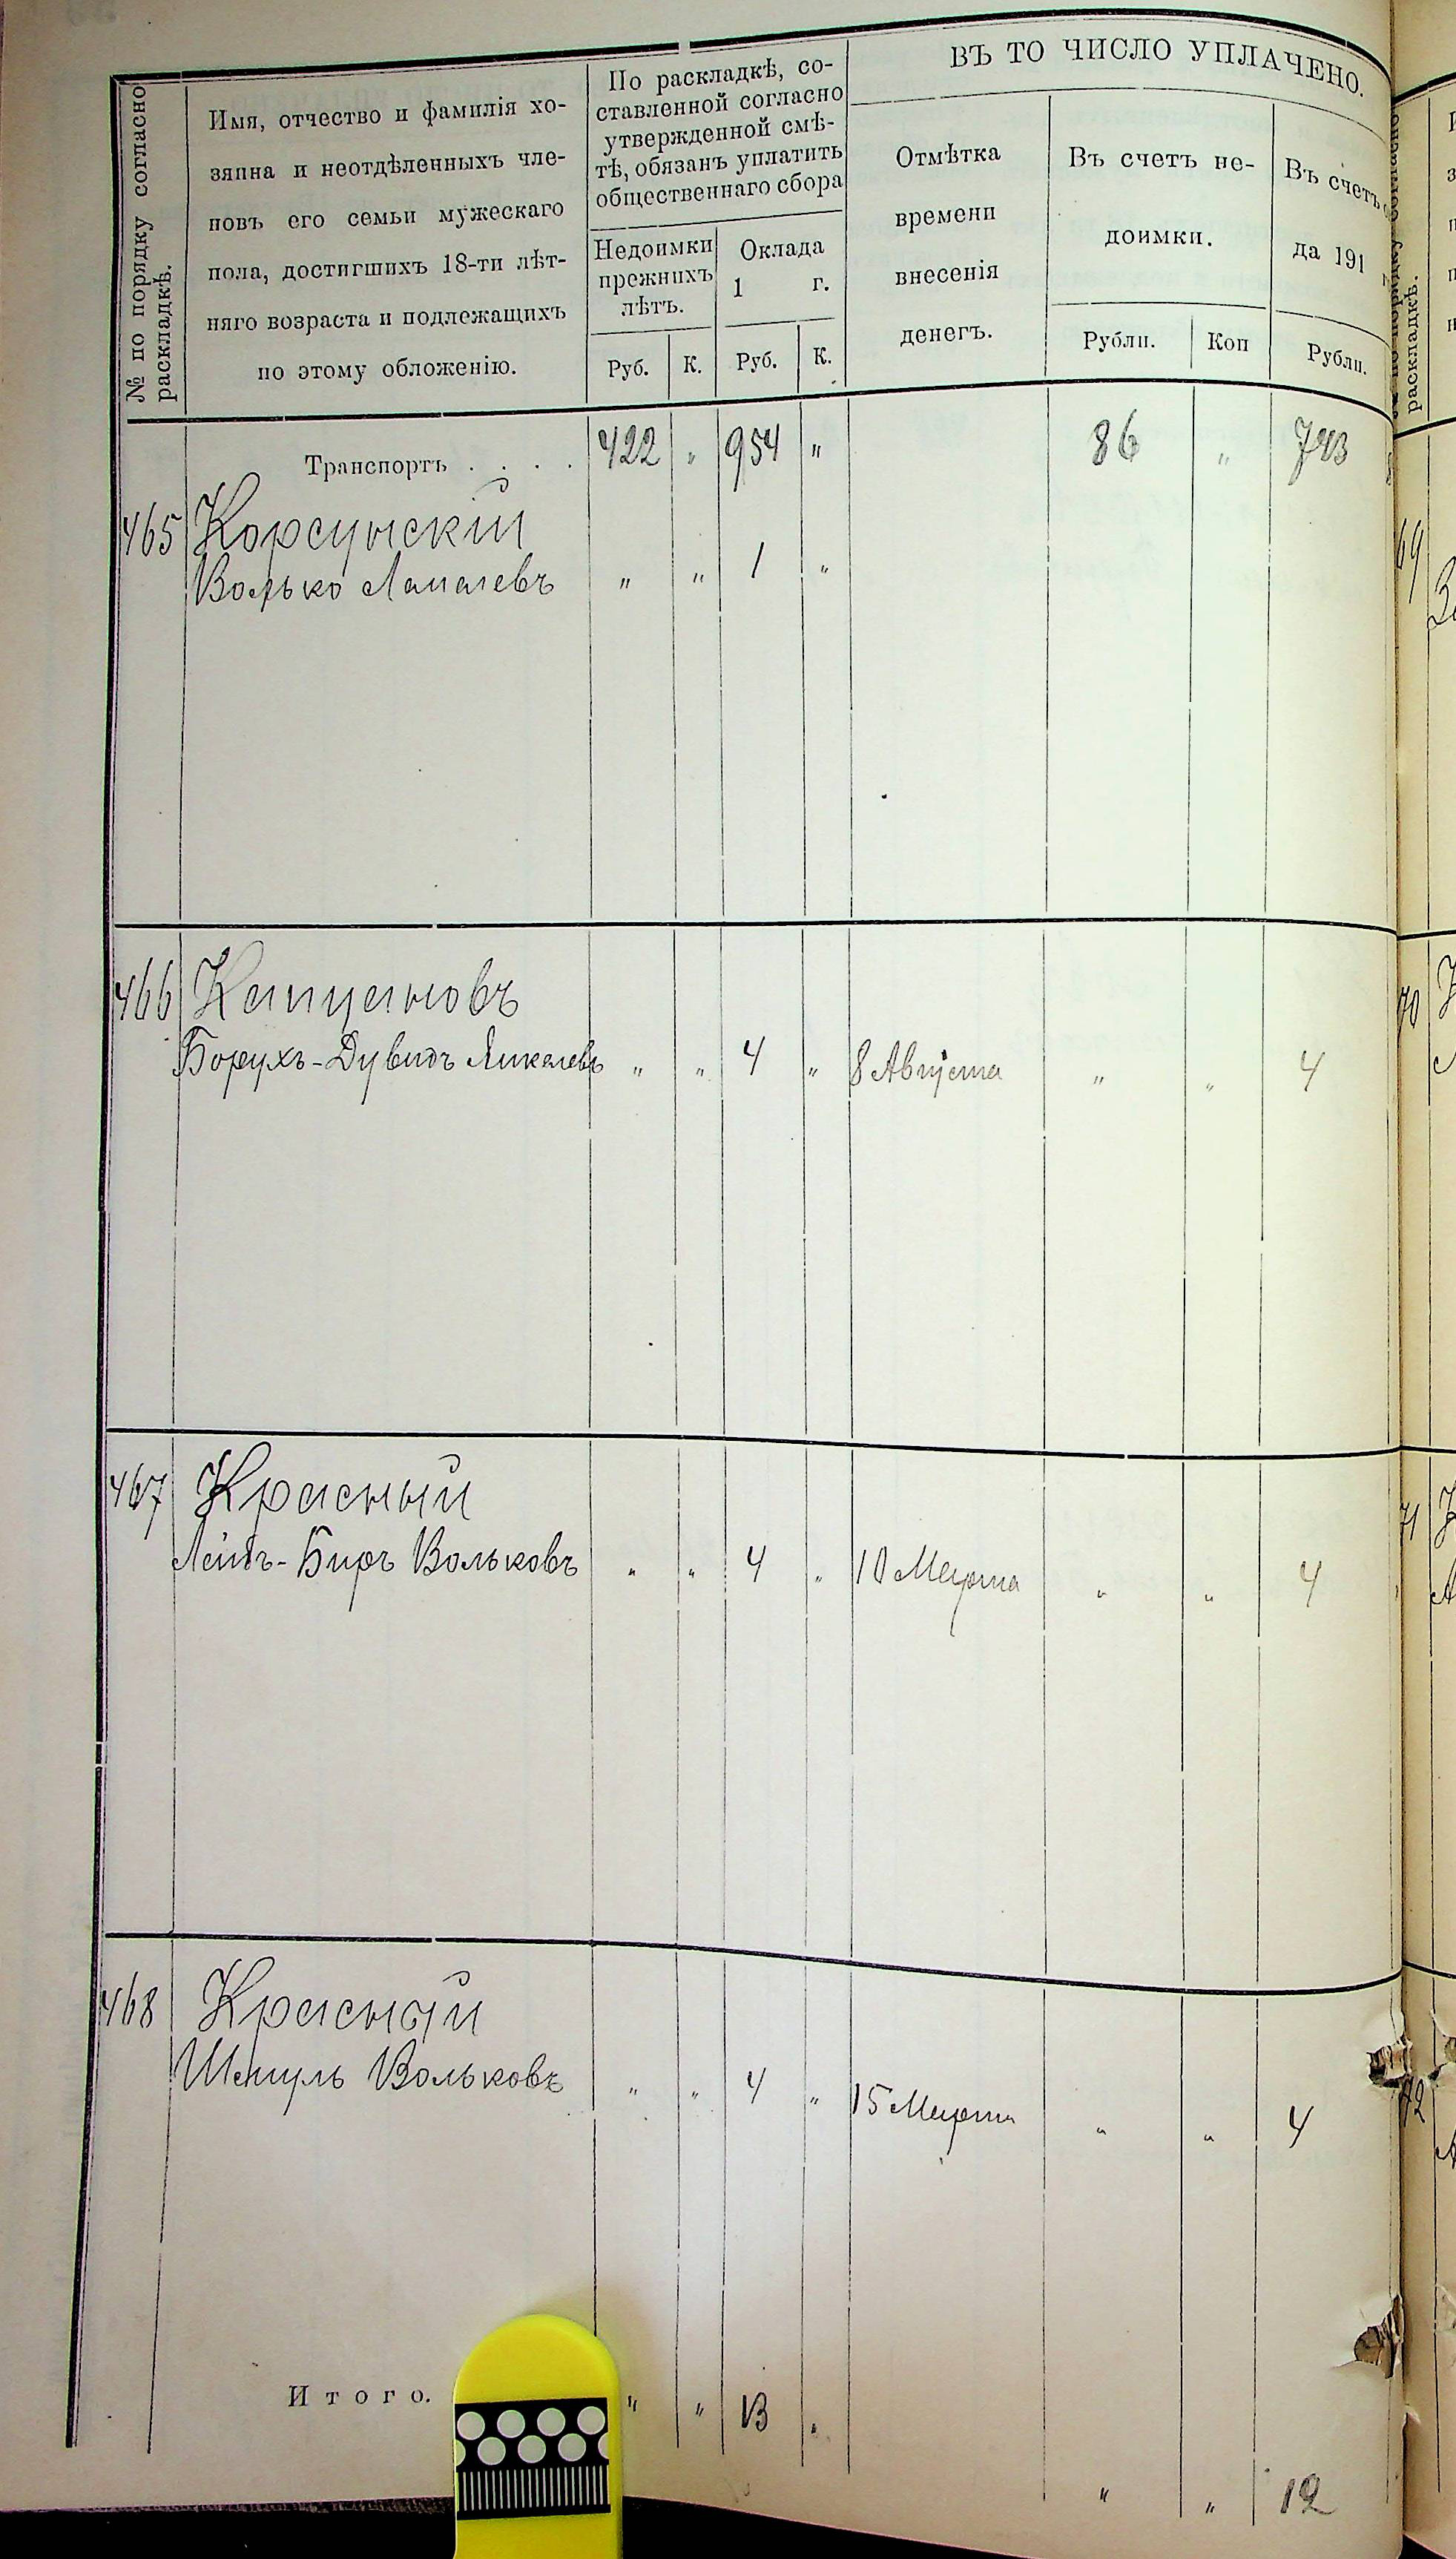 № по порядку согласно
раскладкѣ.
Имя, отчество и фамилія хо-
зяина и неотдѣленныхъ чле-
новъ его семьи мужескаго
пола, достигшихъ 18-ти лѣт-
няго возраста и подлежащихъ
по этому обложенію.
По раскладкѣ, со-
ставленной согласно
утвержденной смѣ-
тѣ, обязанъ уплатить
общественнаго сбора
Недоимки
прежнихъ
лѣтъ.
Оклада
1 г.
Руб. К. Руб. К.
ВЪ ТО ЧИСЛО УПЛАЧЕНО.
Отмѣтка
времени
внесенія
денегъ.
Въ счетъ не-
доимки.
Рубли. Коп
Въ счетъ
да 191
Рубли.
Транспортъ . . . . 422 „ 954 „ 86 „ 743
465 Корсунскій
Волько „ „ 1 „
466 Капцановъ
Борухъ-Дувидъ Янкелевъ „ „ 4 „ 8 Августа „ „ 4
467 Красный
Лейбъ-Беръ Вольковъ „ „ 4 „ 10 Марта „ „ 4
468 Красный
Шмуль Вольковъ „ „ 4 „ 15 Марта „ „ 4
Итого. „ „ 13 „
„ „ 12